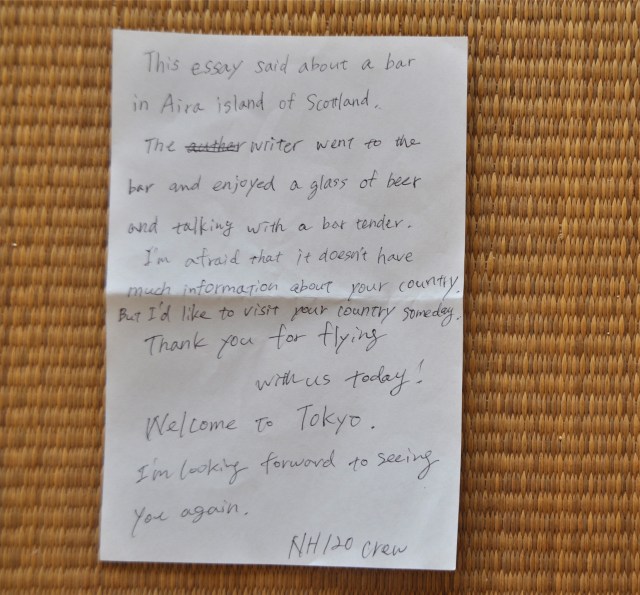 This essay said about a bar
in Aira island of Scottland.
The auther writer went to the
bar and enjoyed a glass of beer
and talking with a bar tender.
I'm afraid that it doesn't have
much information about your country.
But I'd like to visit your country someday.
Thank you for flying
with us today!
Welcome to Tokyo.
I'm looking forward to seeing
you again.
NH120 crew